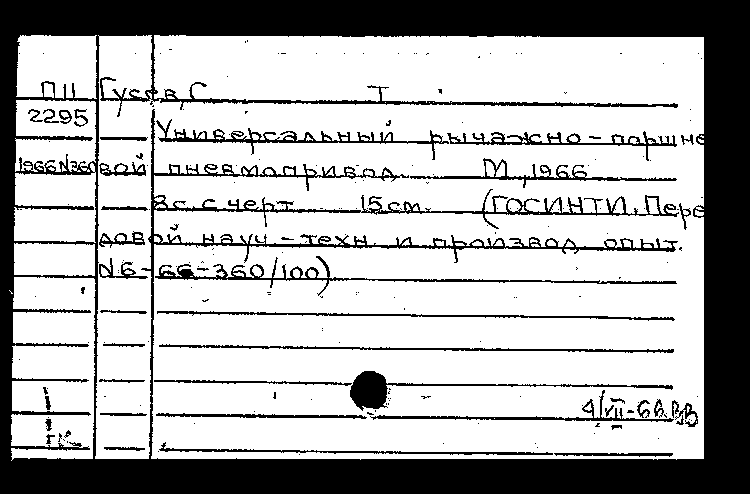 П11 Гусев, С. Т.
2295
Универсальный рычажно-поршне
1966 N360 вой пневмопривод. М., 1966
8с. с черт. 15 см. (ГОСИНТИ. Пере
довой науч.-техн. и производ. опыт.
N 6-66-360/100)
4/VII-66.